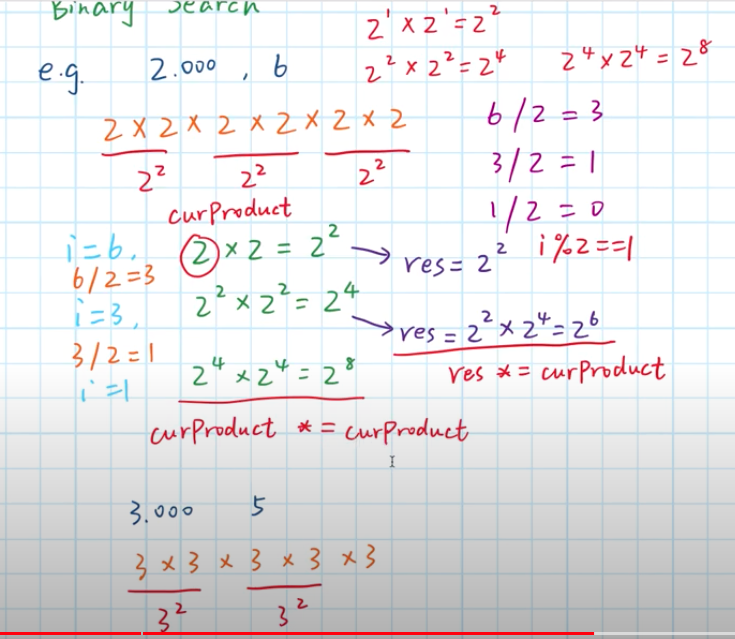 Binary Search
2¹ × 2¹ = 2²
2² × 2² = 2⁴
2⁴ × 2⁴ = 2⁸
e.g. 2.000 , 6
2 × 2 × 2 × 2 × 2 × 2
2² 2² 2²
6 / 2 = 3
3 / 2 = 1
1 / 2 = 0
i % 2 == 1
curProduct
i = 6,
6 / 2 = 3
i = 3,
3 / 2 = 1
i = 1
2 × 2 = 2² → res = 2²
2² × 2² = 2⁴ → res = 2² × 2⁴ = 2⁶
2⁴ × 2⁴ = 2⁸
res *= curProduct
curProduct *= curProduct
3.000 5
3 × 3 × 3 × 3 × 3
3² 3²